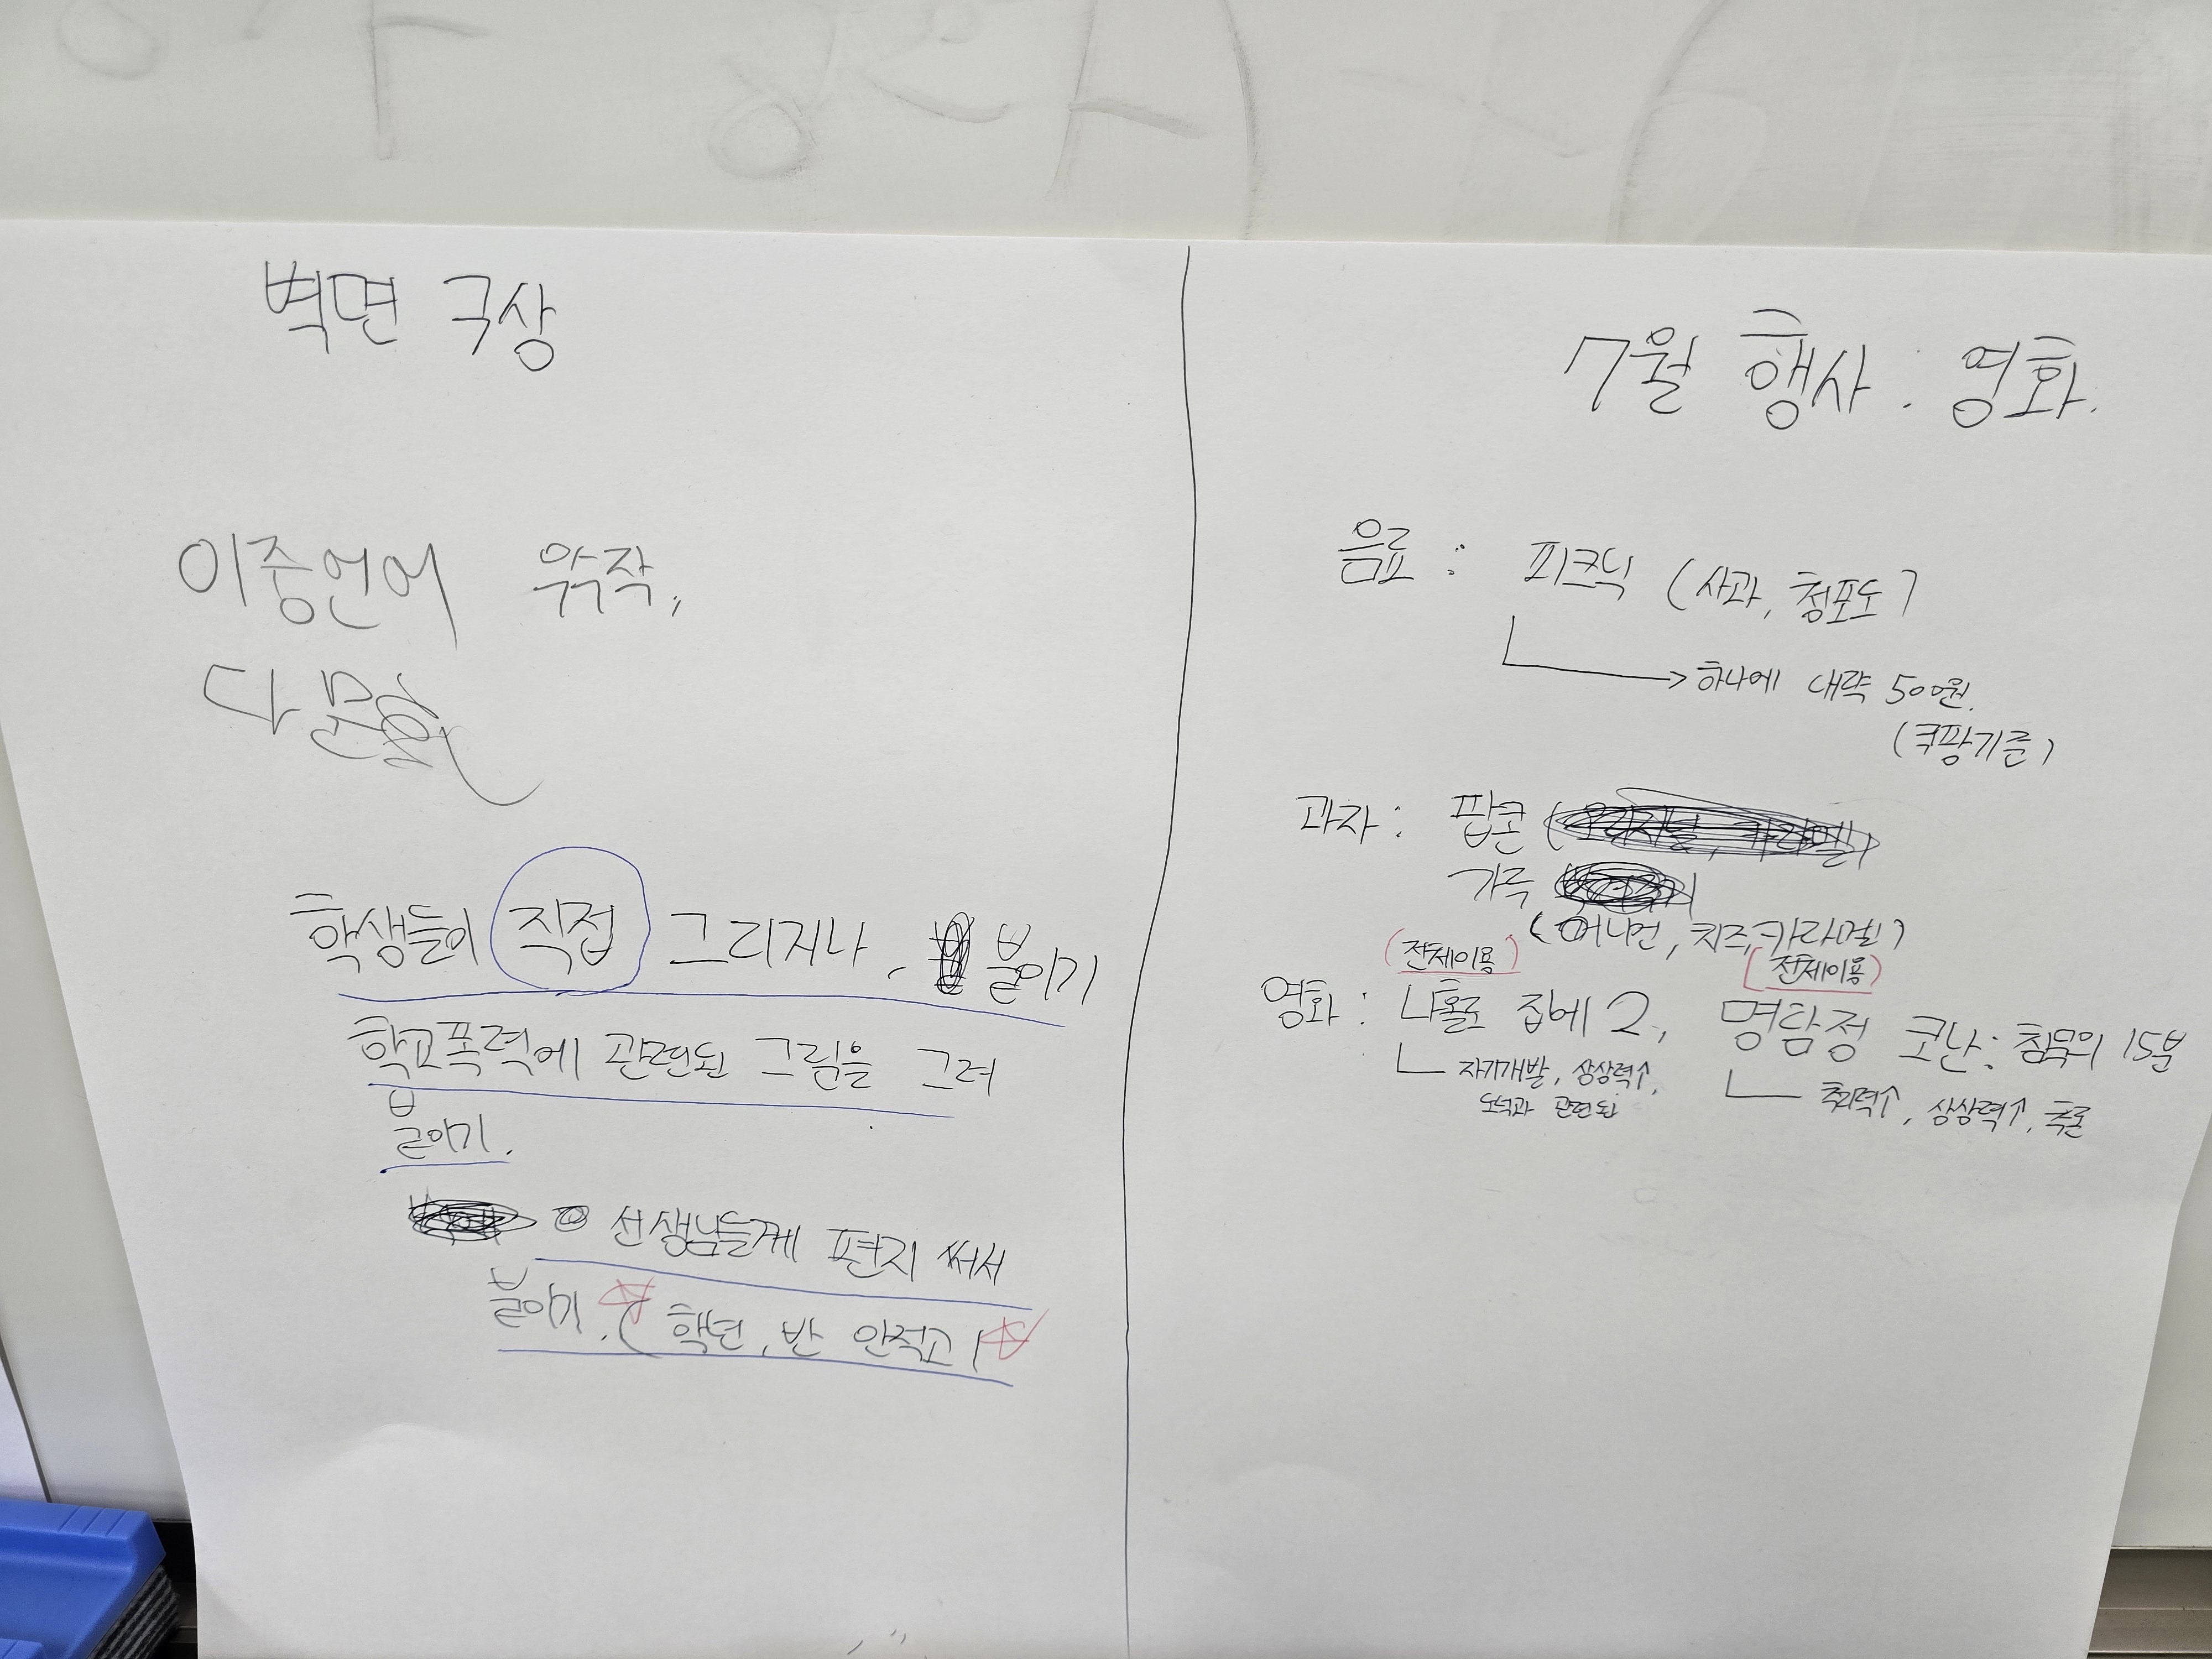 벽면 구상
이중언어
다문화
학생들이 직접 그리거나, 붙이기
학교폭력에 관련된 그림을 그려
붙이기.
선생님들께 편지 써서
붙이기. (학년, 반 안적고)
7월 행사 : 영화.
음료 : 피크닉 (사과, 청포도)
하나에 대략 500원.
(쿠팡기준)
과자 : 팝콘
가루
(어니언, 치즈, 카라멜)
(전체이용) (전체이용)
영화 : 나홀로 집에 2, 명탐정 코난 : 침묵의 15분
자기개발, 상상력↑,
도덕과 관련된
추리력↑, 상상력↑, 추론